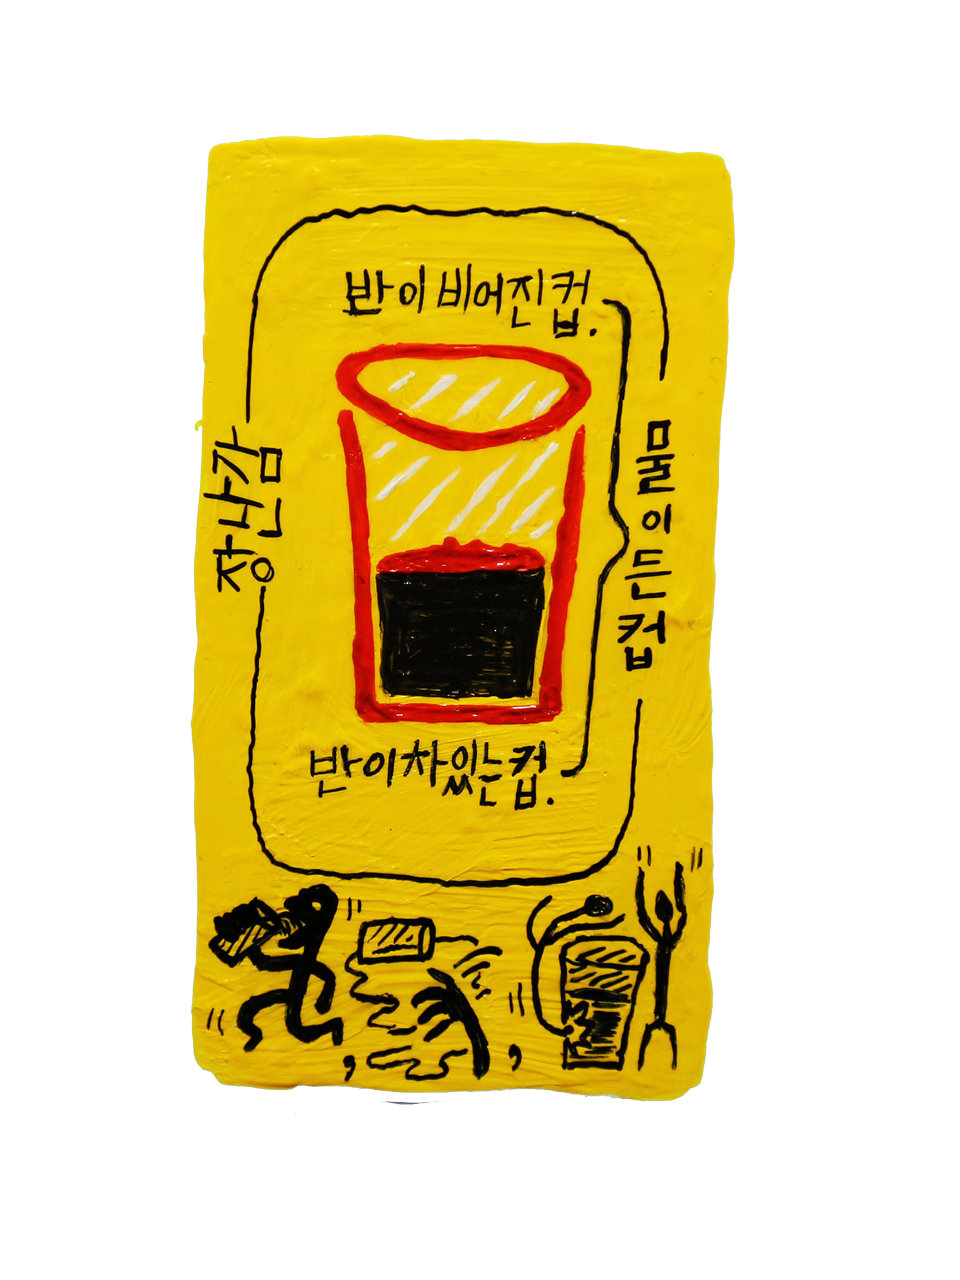 반이 비어진컵.
장난감
물이 든 컵
반이차있는컵.